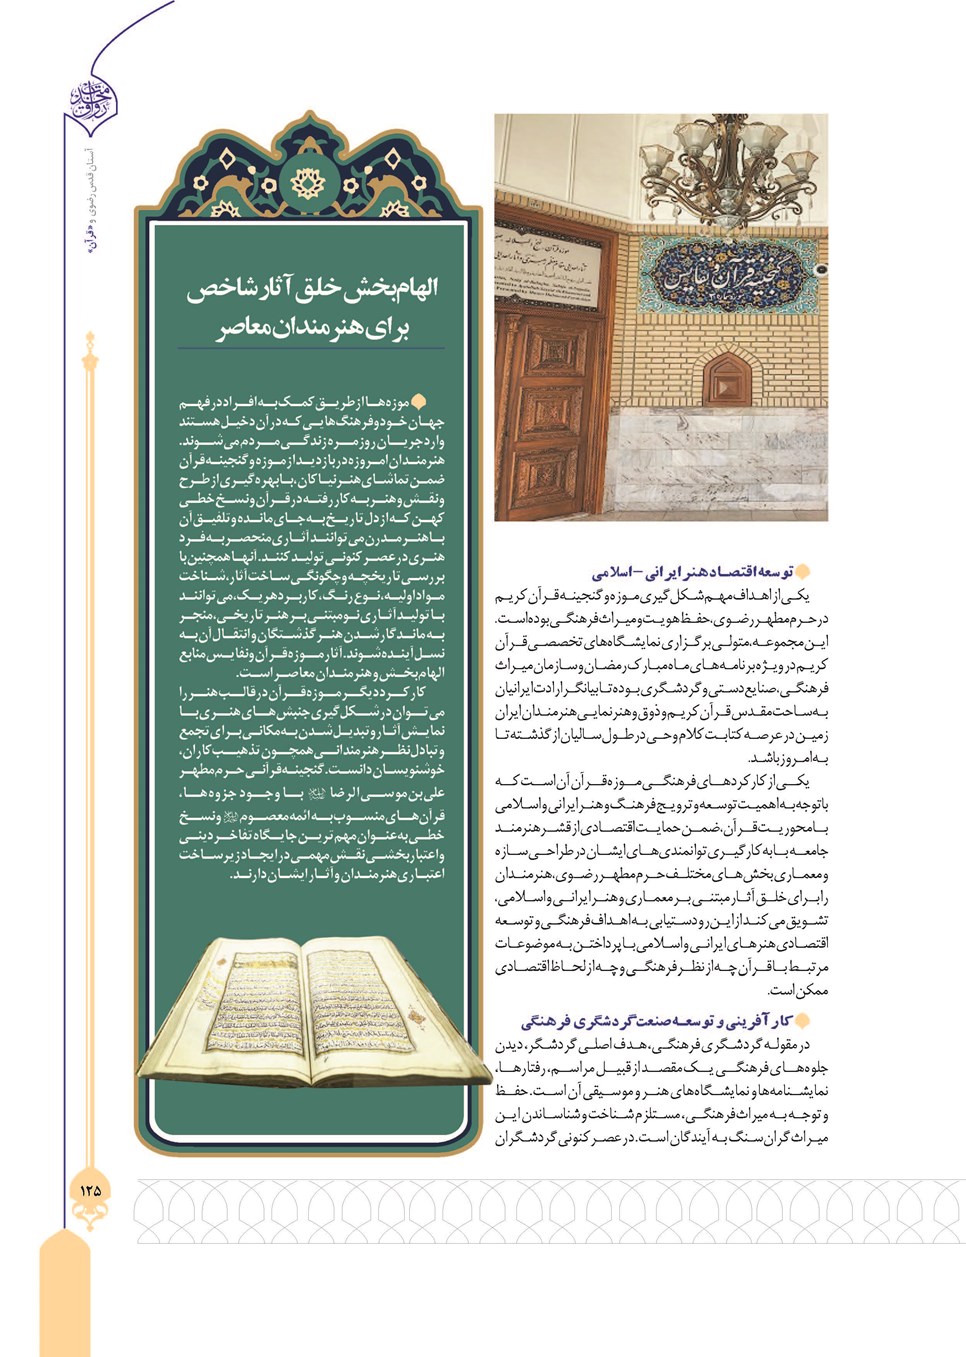 آستان قدس رضوی و «قرآن»
گنجینه قرآن و نفایس
توسعه اقتصاد هنر ایرانی - اسلامی
یکی از اهداف مهم شکل گیری موزه و گنجینه قرآن کریم
در حرم مطهر رضوی، حفظ هویت و میراث فرهنگی بوده است.
این مجموعه، متولی برگزاری نمایشگاه‌های تخصصی قرآن
کریم در ویژه برنامه‌های ماه مبارک رمضان و سازمان میراث
فرهنگی، صنایع دستی و گردشگری بوده تا بیانگر ارادت ایرانیان
به ساحت مقدس قرآن کریم و ذوق و هنرنمایی هنرمندان ایران
زمین در عرصه کتابت کلام وحی در طول سالیان از گذشته تا
به امروز باشد.
یکی از کارکردهای فرهنگی موزه قرآن آن است که
با توجه به اهمیت توسعه و ترویج فرهنگ و هنر ایرانی و اسلامی
با محوریت قرآن، ضمن حمایت اقتصادی از قشر هنرمند
جامعه با به کارگیری توانمندی‌های ایشان در طراحی سازه
و معماری بخش‌های مختلف حرم مطهر رضوی، هنرمندان
را برای خلق آثار مبتنی بر معماری و هنر ایرانی و اسلامی،
تشویق می‌کند از این رو دستیابی به اهداف فرهنگی و توسعه
اقتصادی هنرهای ایرانی و اسلامی با پرداختن به موضوعات
مرتبط با قرآن چه از نظر فرهنگی و چه از لحاظ اقتصادی
ممکن است.
کارآفرینی و توسعه صنعت گردشگری فرهنگی
در مقوله گردشگری فرهنگی، هدف اصلی گردشگر، دیدن
جلوه‌های فرهنگی یک مقصد از قبیل مراسم، رفتارها،
نمایشنامه‌ها و نمایشگاه‌های هنر و موسیقی آن است. حفظ
و توجه به میراث فرهنگی، مستلزم شناخت و شناساندن این
میراث گران سنگ به آیندگان است. در عصر کنونی گردشگران
الهام‌بخش خلق آثار شاخص
برای هنرمندان معاصر
موزه‌ها از طریق کمک به افراد در فهم
جهان خود و فرهنگ‌هایی که در آن دخیل هستند
وارد جریان روزمره زندگی مردم می‌شوند.
هنرمندان امروزه در بازدید از موزه و گنجینه قرآن
ضمن تماشای هنر نیاکان، با بهره‌گیری از طرح
و نقش و هنر به کار رفته در قرآن و نسخ خطی
کهن که از دل تاریخ به جای مانده و تلفیق آن
با هنر مدرن می‌توانند آثاری منحصر به فرد
هنری در عصر کنونی تولید کنند. آنها همچنین با
بررسی تاریخچه و چگونگی ساخت آثار، شناخت
مواد اولیه، نوع رنگ، کاربرد هر یک، می‌توانند
با تولید آثاری نو مبتنی بر هنر تاریخی، منجر
به ماندگار شدن هنر گذشتگان و انتقال آن به
نسل آینده شوند. آثار موزه قرآن و نفایس منابع
الهام‌بخش و هنرمندان معاصر است.
کارکرد دیگر موزه قرآن در قالب هنر را
می‌توان در شکل‌گیری جنبش‌های هنری با
نمایش آثار و تبدیل شدن به مکانی برای تجمع
و تبادل نظر هنرمندانی همچون تذهیب کاران،
خوشنویسان دانست. گنجینه قرآنی حرم مطهر
علی‌بن‌موسی الرضا با وجود جزوه‌ها،
قرآن‌های منسوب به ائمه معصوم و نسخ
خطی به عنوان مهم‌ترین جایگاه تفاخر دینی
و اعتباربخشی نقش مهمی در ایجاد زیرساخت
اعتباری هنرمندان و آثار ایشان دارند.
۱۲۵